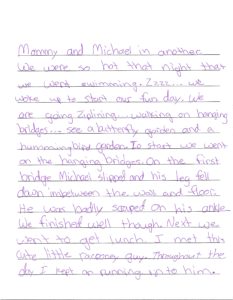 Mommy and Michael in another
We were so hot that night that
we went swimming. Zzzz... we
woke up to start our fun day. We
are going Ziplining, walking on hanging
bridges... see a butterfly garden and a
hummingbird garden. To start we went
on the hanging bridges. On the first
bridge Michael slipped and his leg fell
down imbetween the wall and floor.
He was badly scraped on his ankle
We finished well though. Next we
went to get lunch. I met this
cute little guy. Throughout the
day I kept on running up to him.